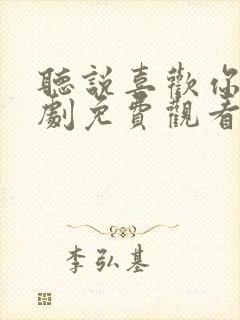 聽說喜歡你
劇免費觀看
李弘基